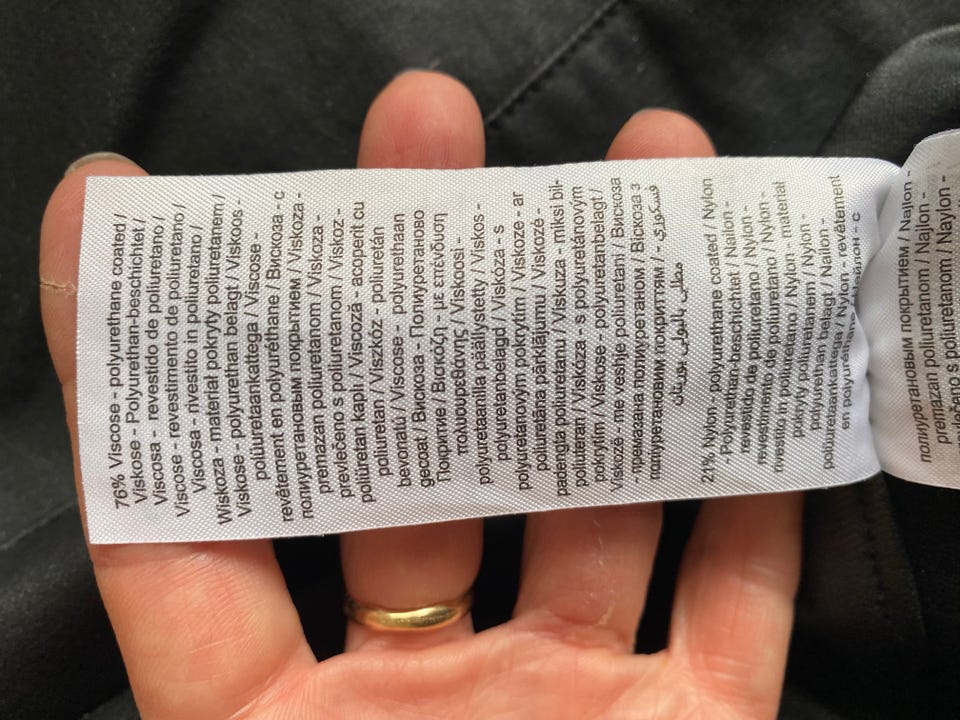 76% Viscose - polyurethane coated /
Viskose - Polyurethan-beschichtet /
Viscosa - revestido de poliuretano /
Viscose - revestimento de poliuretano /
Viscosa - rivestito in poliuretano /
Wiskoza - materiał pokryty poliuretanem /
Viskose - polyurethan belagt / Viskoos -
polüuretaankattega / Viscose -
revêtement en polyuréthane / Вискоза - с
полиуретановым покрытием / Viskoza -
premazan poliuretanom / Viskoza -
prevlečeno s poliuretanom / Viskoz -
poliüretan kaplı / Viscoză - acoperit cu
poliuretan / Viszkóz - poliuretán
bevonatú / Viscose - polyurethaan
gecoat / Вискоза - Полиуретаново
Покритие / Βισκόζη - με επένδυση
πολυουρεθάνης / Viskoosi -
polyuretaanilla päällystetty / Viskos -
polyuretanbelagd / Viskóza - s
polyuretanovým pokrytím / Viskoze - ar
poliuretāna pārklājumu / Viskozė -
padengta poliuretanu / Viskuza - miksi bil-
poliuretan / Viskóza - s polyuretánovým
pokrytím / Viskose - polyuretanbelagt /
Viskozë - me veshje poliuretani / Вискоза
- премазана полиуретаном / Віскоза з
поліуретановим покриттям / فسكوزي -
مطلي بالبولي يوريتان
21% Nylon - polyurethane coated / Nylon
- Polyurethan-beschichtet / Nailon -
revestido de poliuretano / Nylon -
revestimento de poliuretano / Nylon -
rivestito in poliuretano / Nylon - materiał
pokryty poliuretanem / Nylon -
polyurethan belagt / Nailon -
polüuretaankattega / Nylon - revêtement
en polyuréthane / Нейлон - с
полиуретановым покрытием / Najlon -
premazan poliuretanom / Najlon -
prevlečeno s poliuretanom / Naylon -